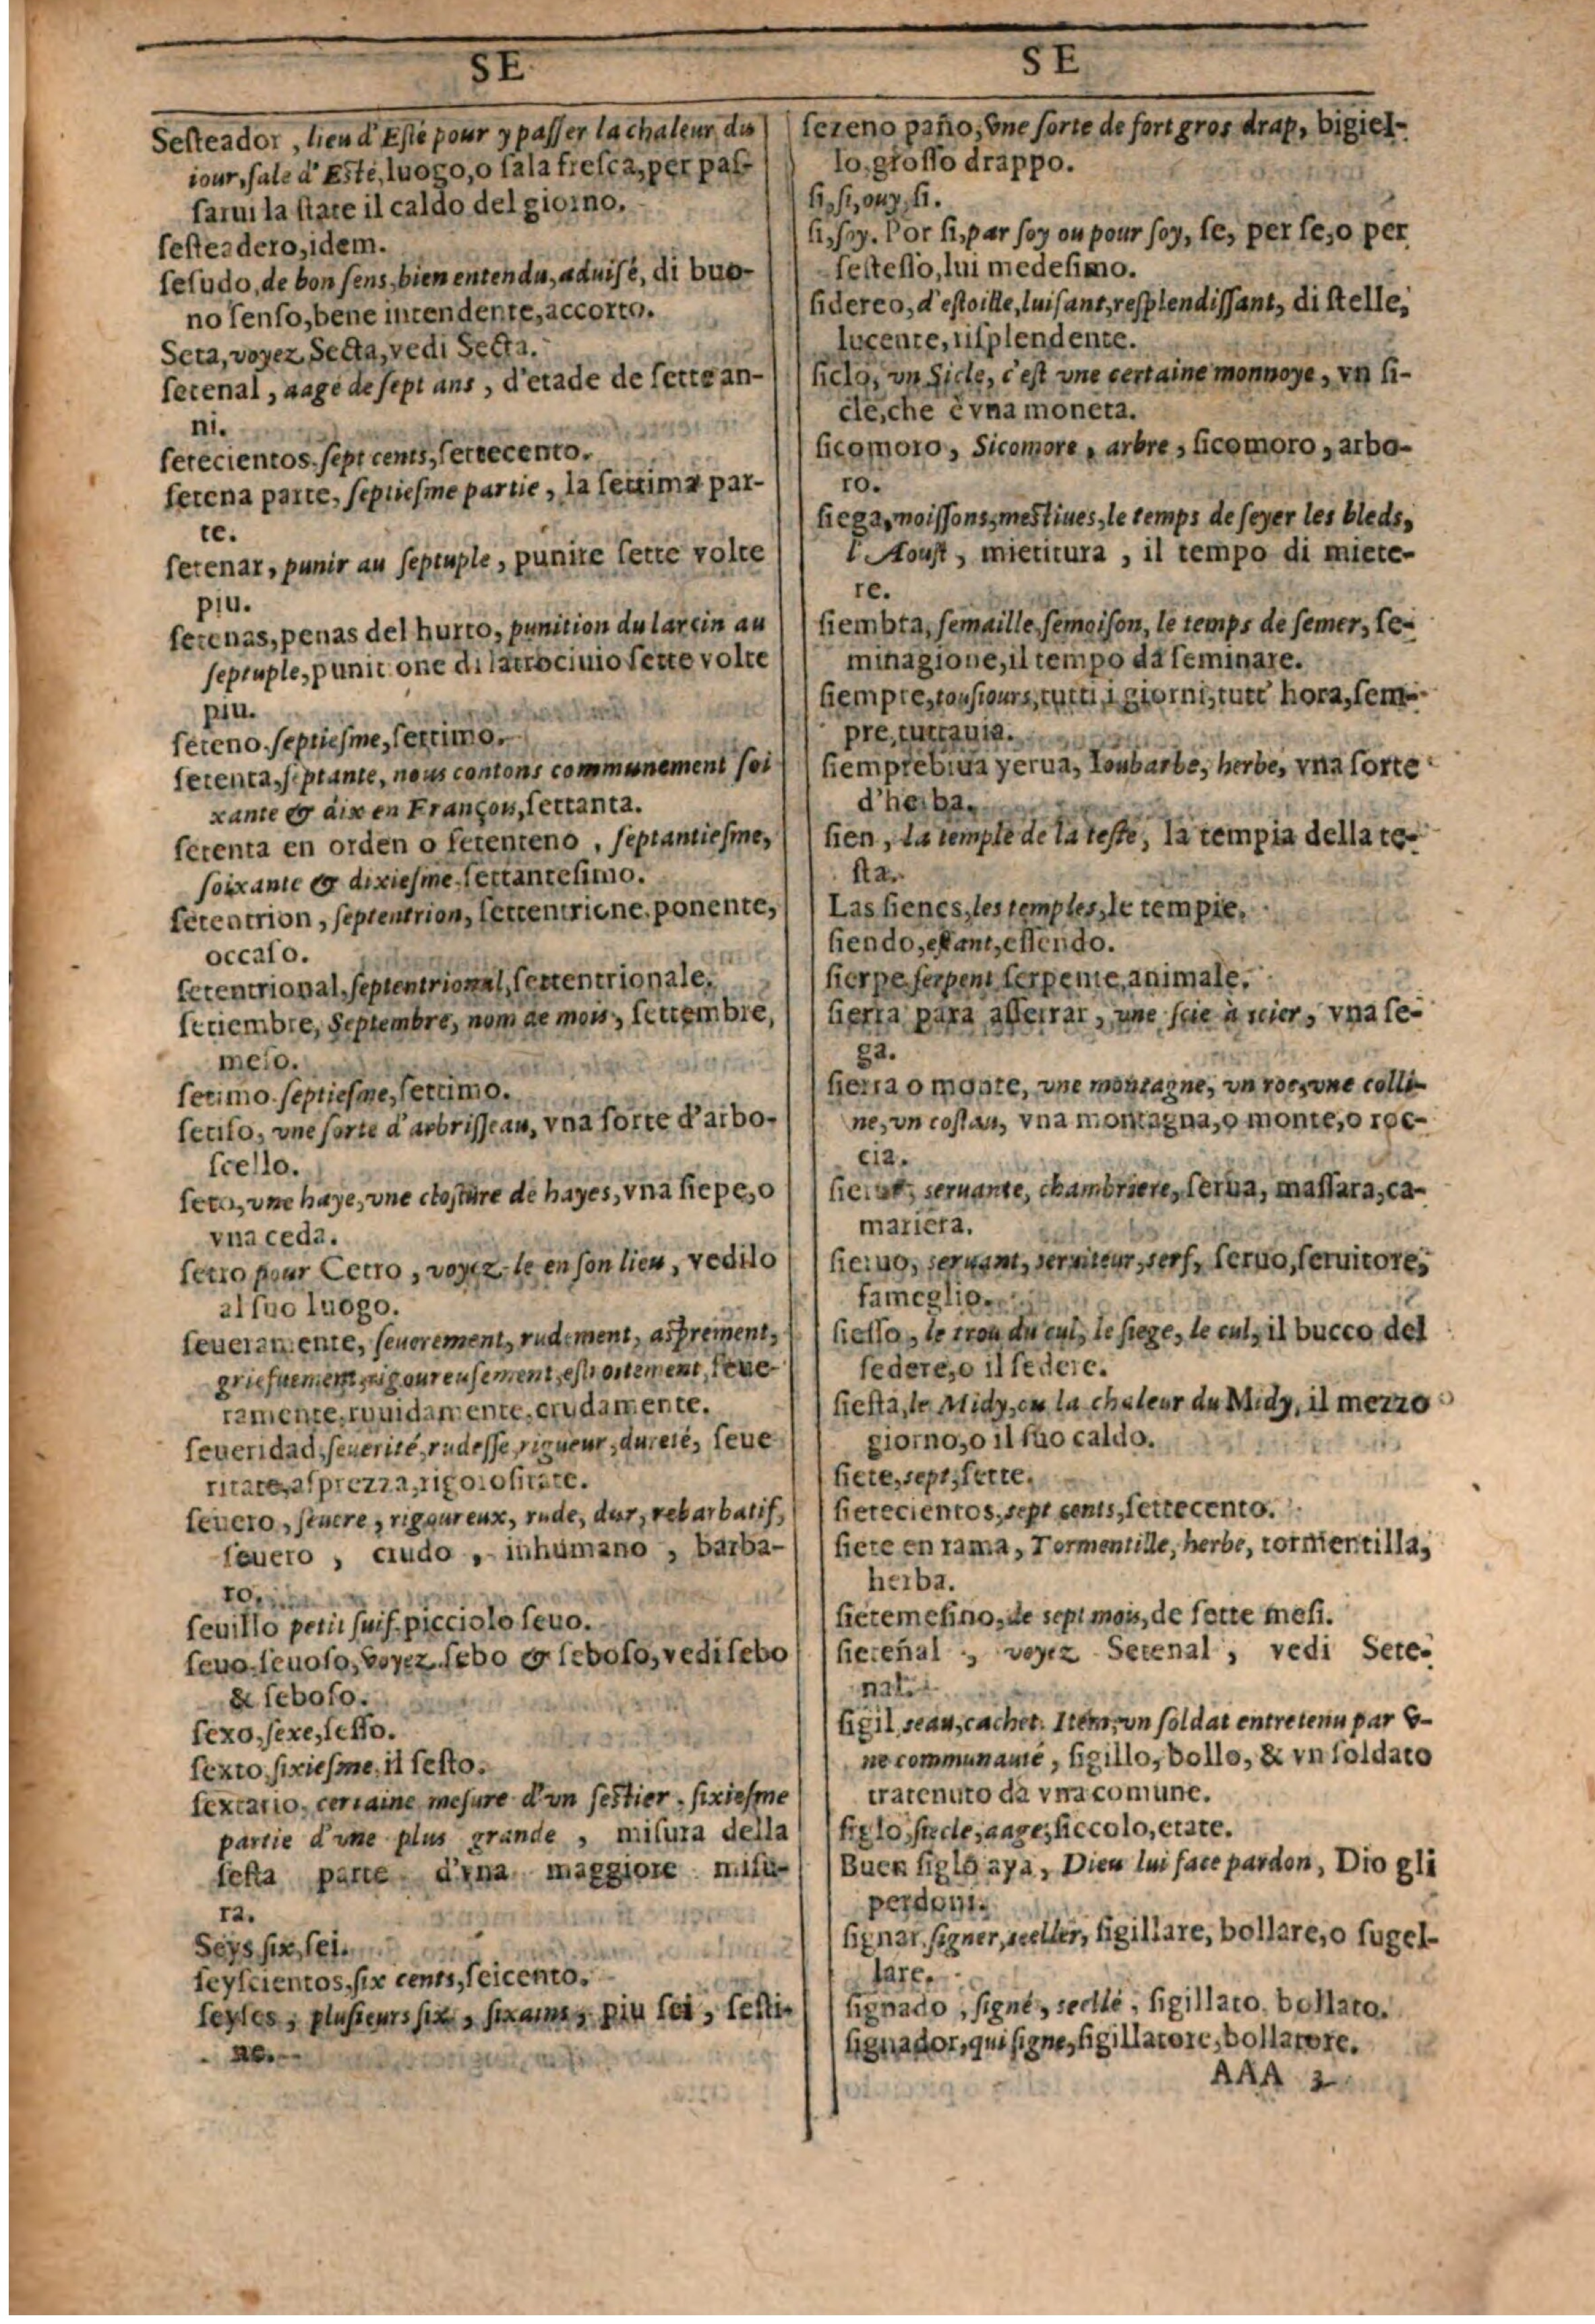 SE
Sesteador, lieu d'Esté pour y passer la chaleur du
iour, sale d'Esté, luogo, o sala fresca, per pas-
sarui la state il caldo del giorno.
sesteadero, idem.
sesudo, de bon sens, bien entendu, aduisé, di buo-
no senso, bene intendente, accorto.
Seta, voyez Secta, vedi Secta.
setenal, aagé de sept ans, d'etade de sette an-
ni.
setecientos, sept cents, settecento.
setena parte, septiesme partie, la settima par-
te.
setenar, punir au septuple, punire sette volte
piu.
setenas, penas del hurto, punition du larcin au
septuple, punitione di latrociuio sette volte
piu.
seteno, septiesme, settimo.
setenta, septante, nous contons communement soi
xante & dix en François, settanta.
setenta en orden o setenteno, septantiesme,
soixante & dixiesme, settantesimo.
setentrion, septentrion, settentrione, ponente,
occaso.
setentrional, septentrional, settentrionale.
setiembre, Septembre, nom de mois, settembre,
meso.
setimo, septiesme, settimo.
setiso, vne sorte d'arbrisseau, vna sorte d'arbo-
scello.
seto, vne haye, vne closture de hayes, vna siepe, o
vna ceda.
setro pour Cetro, voyez-le en son lieu, vedilo
al suo luogo.
seueramente, seuerement, rudement, asprement,
griefuement, rigoureusement, estroitement, seue-
ramente, ruuidamente, crudamente.
seueridad, seuerité, rudesse, rigueur, dureté, seue
ritate, asprezza, rigorositate.
seuero, seuere, rigoureux, rude, dur, rebarbatif,
seuero, crudo, inhumano, barba-
ro.
seuillo petit suif, picciolo seuo.
seuo, seuoso, voyez sebo & seboso, vedi sebo
& seboso.
sexo, sexe, sesso.
sexto, sixiesme, il sesto.
sextario, certaine mesure d'vn sestier, sixiesme
partie d'vne plus grande, misura della
sesta parte d'vna maggiore misu-
ra.
Seys, six, sei.
seyscientos, six cents, seicento.
seyses, plusieurs six, sixains, piu sei, sesti-
ne.
SE
sezeno paño, vne sorte de fort gros drap, bigiel-
lo, grosso drappo.
si, si, ouy, si.
si, soy. Por si, par soy ou pour soy, se, per se, o per
sestesso, lui medesimo.
sidereo, d'estoille, luisant, resplendissant, di stelle,
lucente, risplendente.
siclo, vn Sicle, c'est vne certaine monnoye, vn si-
cle, che è vna moneta.
sicomoro, Sicomore, arbre, sicomoro, arbo-
ro.
siega, moissons, mestiues, le temps de seyer les bleds,
l'Aoust, mietitura, il tempo di miete-
re.
siembra, semaille, semoison, le temps de semer, se-
minagione, il tempo da seminare.
siempre, tousiours, tutti i giorni, tutt' hora, sem-
pre, tuttauia.
siemprebiua yerua, Ioubarbe, herbe, vna sorte
d'herba.
sien, la temple de la teste, la tempia della te-
sta.
Las sienes, les temples, le tempie.
siendo, estant, essendo.
sierpe, serpent, serpente, animale.
sierra para asserrar, vne scie à scier, vna se-
ga.
sierra o monte, vne montagne, vn roc, vne colli-
ne, vn costau, vna montagna, o monte, o roc-
cia.
sierua, seruante, chambriere, serua, massara, ca-
mariera.
sieruo, seruant, seruiteur, serf, seruo, seruitore,
fameglio.
siesso, le trou du cul, le siege, le cul, il bucco del
sedere, o il sedere.
siesta, le Midy, ou la chaleur du Midy, il mezzo
giorno, o il suo caldo.
siete, sept, sette.
sietecientos, sept cents, settecento.
siete en rama, Tormentille, herbe, tormentilla,
herba.
sietemesino, de sept mois, de sette mesi.
sieteñal, voyez Setenal, vedi Sete-
nal.
sigil, seau, cachet. Item, vn soldat entretenu par v-
ne communauté, sigillo, bollo, & vn soldato
tratenuto da vna comune.
siglo, siecle, aage, siccolo, etate.
Buen siglo aya, Dieu lui face pardon, Dio gli
perdoni.
signar, signer, seeller, sigillare, bollare, o sugel-
lare.
signado, signé, seellé, sigillato, bollato.
signador, qui signe, sigillatore, bollatore.
AAA 2